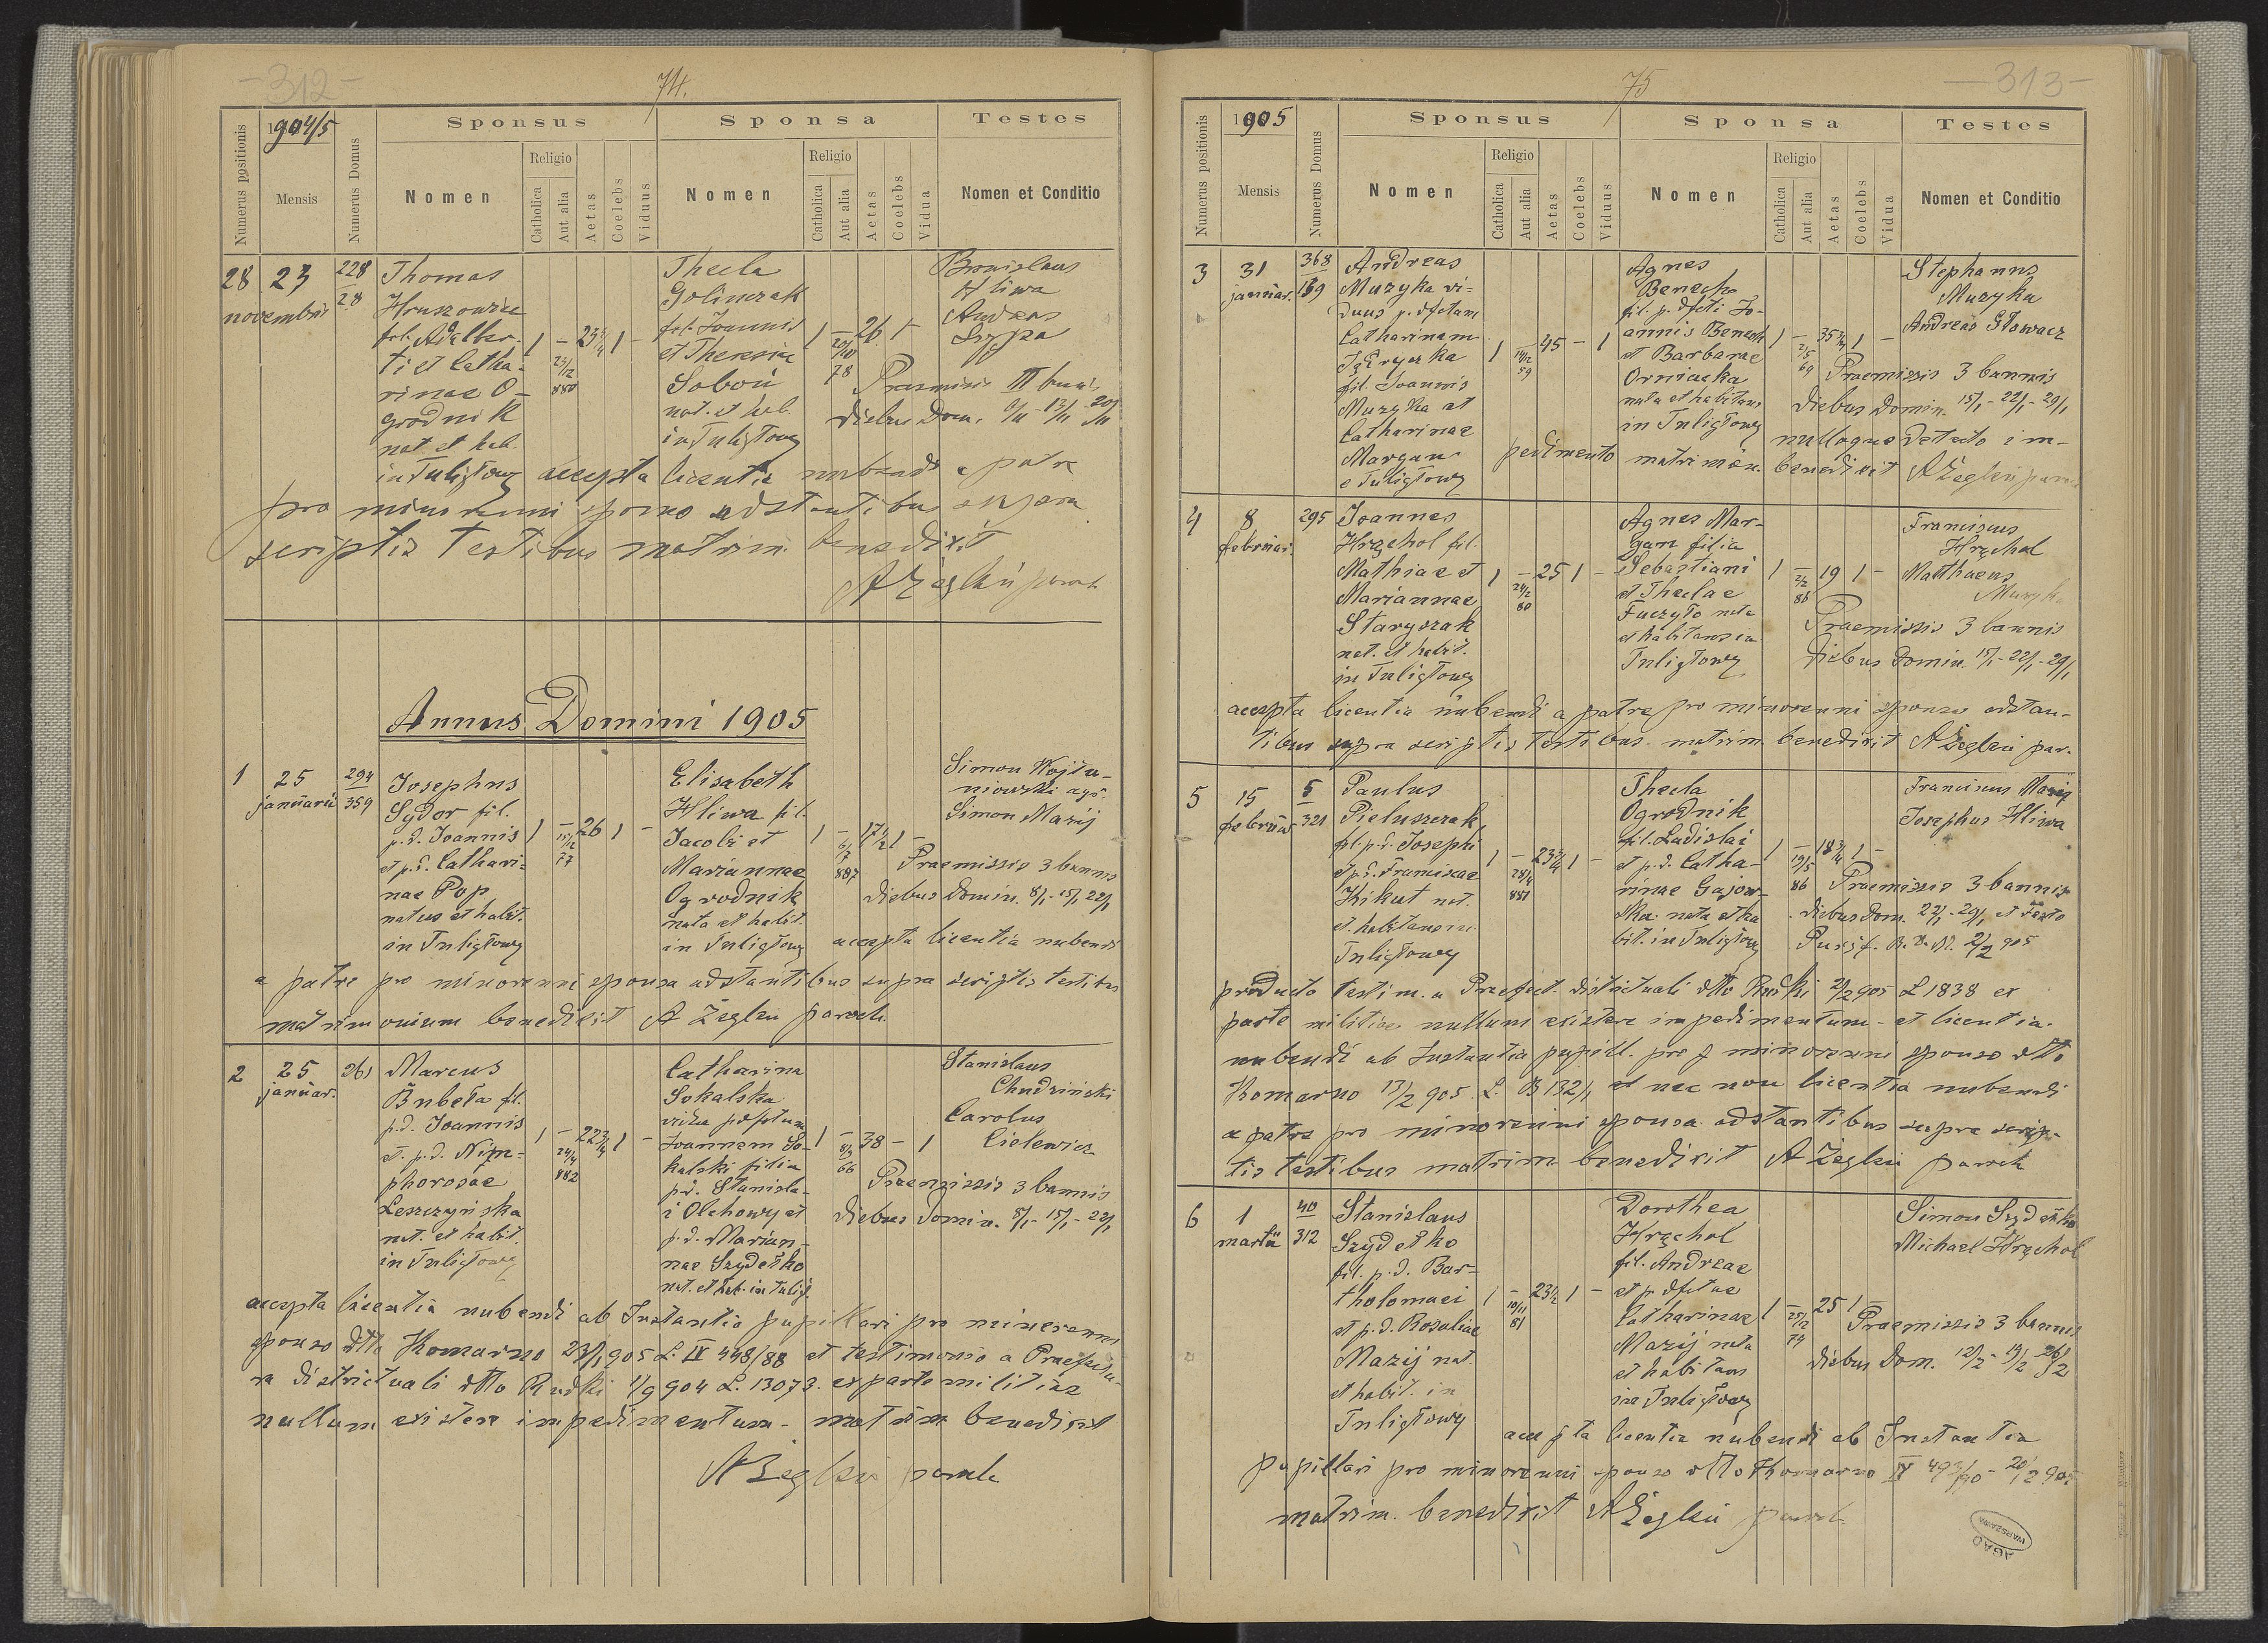 - 312 -
74.
Numerus positionis
1904/5
Mensis
Numerus Domus
Sponsus
Nomen
Religio
Catholica
Aut alia
Aetas
Coelebs
Viduus
Sponsa
Nomen
Religio
Catholica
Aut alia
Aetas
Coelebs
Vidua
Testes
Nomen et Conditio
28
23
novembris
228
28
Thomas
Hruszowiec
fil. Adalber-
ti et Catha-
rinae O-
grodnik
nat. et hab.
in Tuligłowy
1 - 23 3/4 1 -
23/12
880
Thecla
Golinczak
fil. Joannis
et Theresiae
Soboń
nat. et hab.
in Tuligłowy
1 - 26 1 -
78
Bronislaus
Hliwa
Andreas
Praemissis III bannis
diebus Dom. 6/11 - 13/11 20/11
accepta licentia nubendi a patre
pro minorenni sponso adstantibus supra
scriptis testibus matrim. benedixit
A Żeglin paroch.
Annus Domini 1905
1
25
januarii
294
359
Josephus
Sydor fil.
p.d. Joannis
et p.d. Cathari-
nae Pop
natus et habit.
in Tuligłowy
1 - 26 1 -
15/12
77
Elisabeth
Hliwa fil.
Jacobi et
Mariannae
Ogrodnik
nata et habit.
in Tuligłowy
1 - 17 1/2 1 -
6/7
887
Simon Wojtu-
niowski agr.
Simon Mazij
Praemissis 3 bannis
diebus Domin. 8/1 - 15/1 22/1
accepta licentia nubendi
a patre pro minorenni sponsa adstantibus supra scriptis testibus
matrimonium benedixit A Żeglin paroch.
2
25
januar.
261
Marcus
Bubeła fil.
p.d. Joannis
et p.d. Nim-
phorosae
Leszczyńska
nat. et habit.
in Tuligłowy
1 - 22 3/4 1 -
24/4
882
Catharina
Sokalska
vidua p. dfctum
Joannem So-
kalski filia
p.d. Stanisla-
i Olchowy et
p.d. Marian-
nae Szydełko
nat. et hab. in Tulig.
1 - 38 - 1
66
Stanislaus
Chudziński
Carolus
Cielewicz
Praemissis 3 bannis
diebus Domin. 8/1 - 15/1 - 22/1
accepta licentia nubendi ab Instantia pupillari pro minorenni
sponso dtto Komarno 23/1 905 L. IV 448/88 et testimonio a Praefectu-
ra districtuali dtto Rudki 1/9 904 L. 13073. ex parte militiae
nullum existere impedimentum - matrim. benedixit
A Żeglin paroch.
75
- 313 -
Numerus positionis
1905
Mensis
Numerus Domus
Sponsus
Nomen
Religio
Catholica
Aut alia
Aetas
Coelebs
Viduus
Sponsa
Nomen
Religio
Catholica
Aut alia
Aetas
Coelebs
Vidua
Testes
Nomen et Conditio
3
31
januar.
368
139
Andreas
Muzyka vi-
duus p. dfctam
Catharinam
fil. Joannis
Muzyka et
Catharinae
Margan
e Tuligłowy
1 - 45 - 1
59
Agnes
Benech
fil. p. dfcti Jo-
annis Benech
et Barbarae
Orniacka
nata et habitans
in Tuligłowy
1 - 35 3/4 1 -
2/5
69
Stephanus
Muzyka
Andreas Głowacz
Praemissis 3 bannis
diebus Domin. 15/1 - 22/1 - 29/1
nulloque detecto im-
pedimento matrimon. benedixit A Żeglin paroch
4
8
februar.
295
Joannes
Hrzehol fil.
Mathiae et
Mariannae
Staryszak
nat. et habit.
in Tuligłowy
1 - 25 1 -
24/2
80
Agnes Mar-
gan filia
Sebastiani
et Theclae
Fuczyło nata
et habitans in
Tuligłowy
1 - 19 1 -
2/2
86
Franciscus
Hrzehol
Matthaeus
Muzyka
Praemissis 3 bannis
diebus Domin. 15/1 - 22/1 - 29/1
accepta licentia nubendi a patre pro minorenni sponso adstan-
tibus supra scriptis testibus matrim. benedixit A Żeglin par.
5
15
februar
5
321
Paulus
Pieluszczak
fil. p.d. Josephi
et p.d. Franciscae
Kikut nat.
et habitans in
Tuligłowy
1 - 23 3/4 1 -
28/4
881
Thecla
Ogrodnik
fil. Ladislai
et p.d. Catha-
rinae Gajow-
ska nata et ha-
bit. in Tuligłowy
1 - 18 3/4 1 -
19/5
86
Franciscus Mazij
Josephus Hliwa
Praemissis 3 bannis
diebus Dom. 22/1 - 29/1 et Festo
Purif. B.V.M. 2/2 905
producto testim. a Praefect. districtuali dtto Rudki 2/2 905 L 1838 ex
parte militiae nullum existere impedimentum - et licentia
nubendi ab Instantia pupill. pro minorenni sponso dtto
Komarno 17/2 905. L. B 132/1 et nec non licentia nubendi
a patre pro minorenni sponsa adstantibus supra scrip-
tis testibus matrim. benedixit A Żeglin paroch
6
1
martii
40
312
Stanislaus
Szydełko
fil. p.d. Bar-
tholomaei
et p.d. Rosaliae
Mazij nat.
et habit. in
Tuligłowy
1 - 23 1/2 1 -
10/11
81
Dorothea
Hrzehol
fil. Andreae
et p. dfctae
Catharinae
Mazij nata
et habitans
in Tuligłowy
1 - 25 1 -
79
Simon Szydełko
Michael Hrzehol
Praemissis 3 bannis
diebus Dom. 12/2 - 19/2 26/2
accepta licentia nubendi ab Instantia
pupillari pro minorenni sponso dtto Komarno IV 493/90 - 20/2 905
matrim. benedixit A Żeglin paroch.
AGAD
WARSZAWA